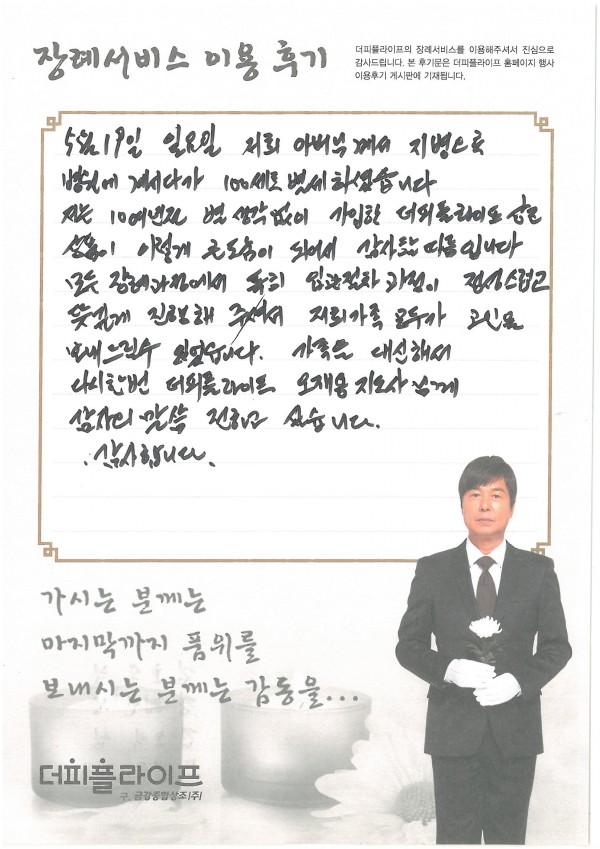 장례서비스 이용 후기
더피플라이프의 장례서비스를 이용해주셔서 진심으로
감사드립니다. 본 후기문은 더피플라이프 홈페이지 행사
이용후기 게시판에 기재됩니다.
5월 19일 일요일 저희 아버님께서 지병으로
병원에 계시다가 100세로 별세하셨습니다
저는 10여년전 별 생각없이 가입한 더피플라이프
상품이 이렇게 큰도움이 되어서 감사할 따름입니다
모든 장례과정에서 특히 입관절차 과정이 정성스럽고
뜻깊게 진행해 주셔서 저희가족 모두가 고인을
보내드릴수 있었습니다. 가족을 대신해서
다시한번 더피플라이프 오재용 지도사님께
감사의 말씀 전하고 싶습니다.
감사합니다.
가시는 분께는
마지막까지 품위를
보내시는 분께는 감동을...
더피플라이프
구. 금강종합상조(주)